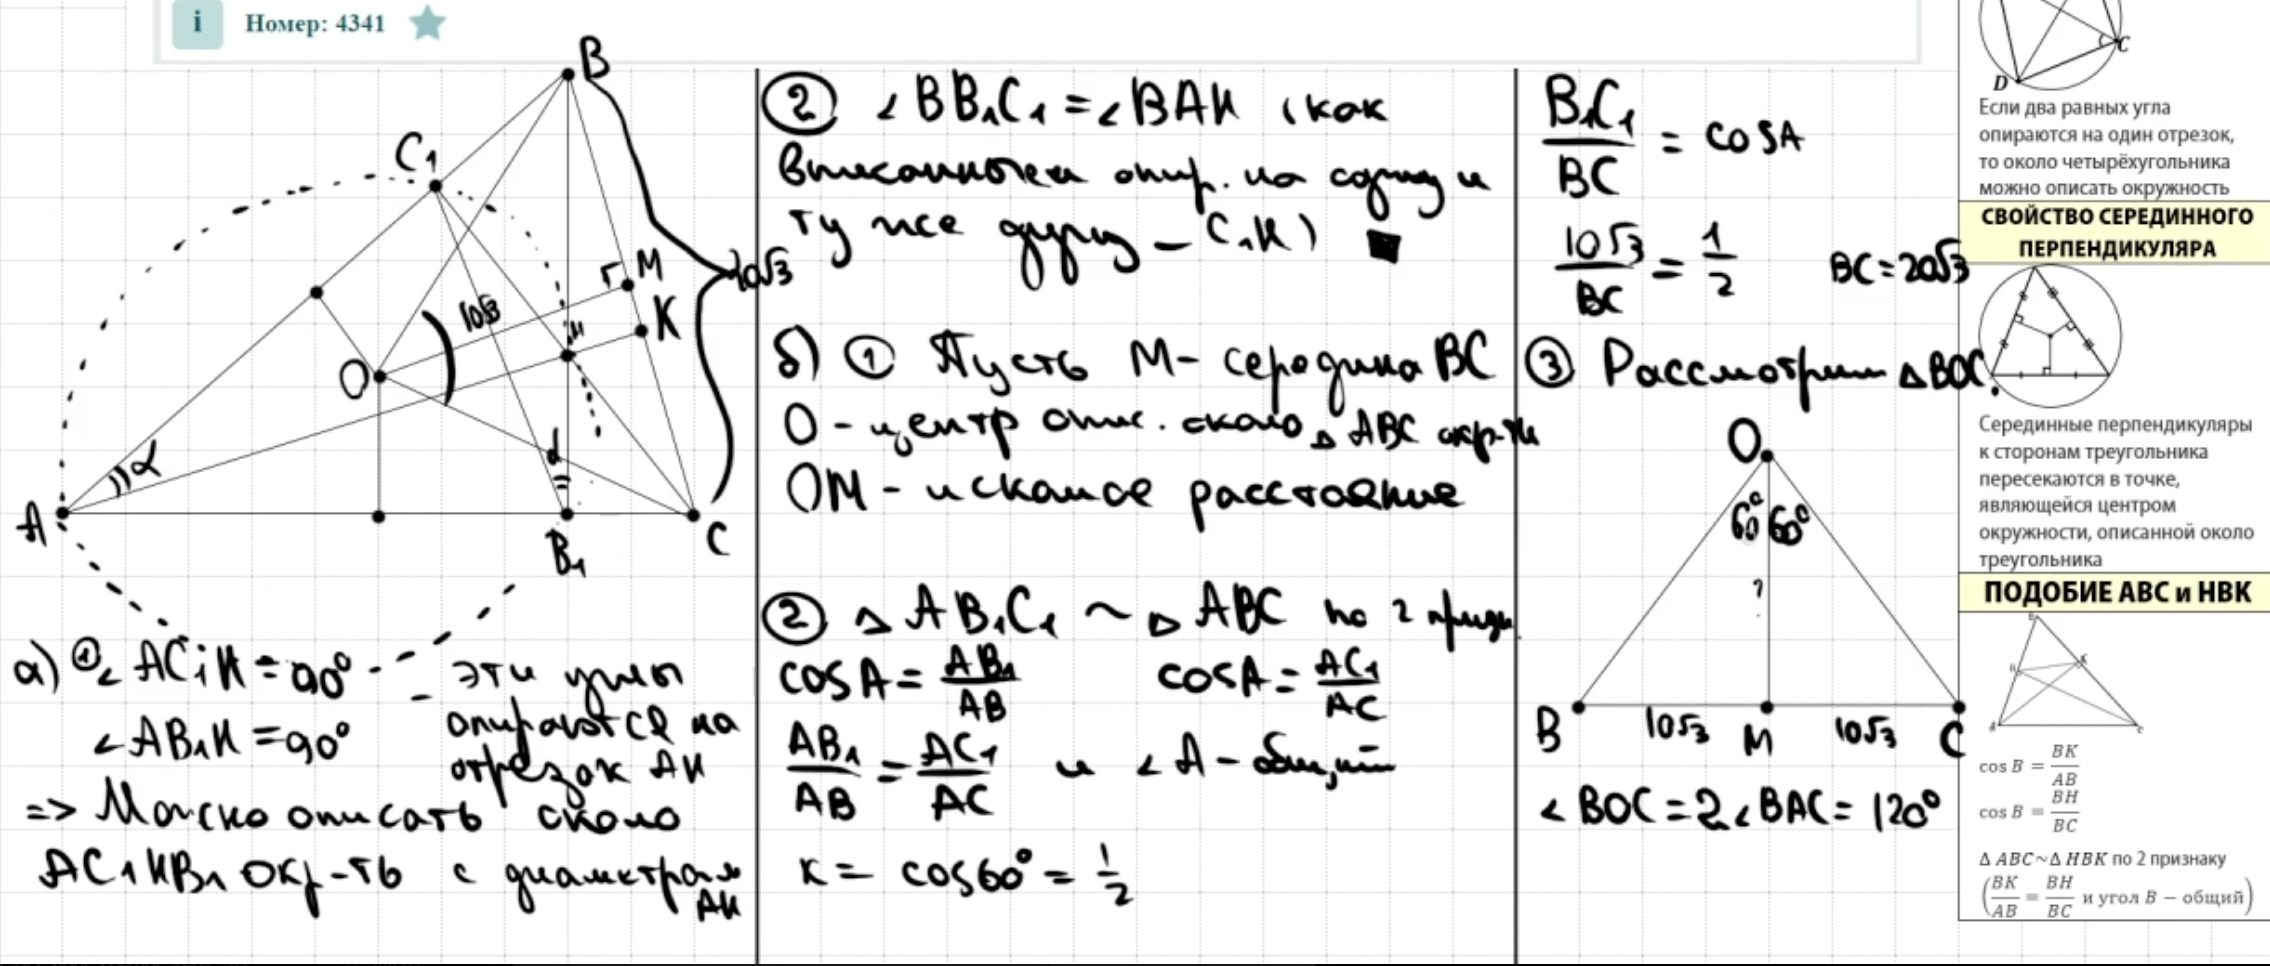 i Номер: 4341
B
C₁
M
20√3
K
10√3
H
O
α
α
=
A
B₁
C
а) ① ∠AC₁H = 90° - эти углы
∠AB₁H = 90° опираются на
отрезок AH
=> Можно описать около
AC₁HB₁ окр-ть с диаметром
AH
② ∠BB₁C₁ = ∠BAH (как
вписанные и опир. на одну и
ту же дугу - C₁H)
б) ① Пусть M - середина BC
O - центр опис. около △ABC окр-ти
OM - искомое расстояние
② △AB₁C₁ ~ △ABC по 2 призн.
cosA = AB₁/AB cosA = AC₁/AC
AB₁/AB = AC₁/AC и ∠A - общий
K = cos60° = 1/2
B₁C₁/BC = cosA
10√3/BC = 1/2 BC = 20√3
③ Рассмотрим △BOC.
O
60° 60°
?
B 10√3 M 10√3 C
∠BOC = 2∠BAC = 120°
C
D
Если два равных угла
опираются на один отрезок,
то около четырёхугольника
можно описать окружность
СВОЙСТВО СЕРЕДИННОГО
ПЕРПЕНДИКУЛЯРА
Серединные перпендикуляры
к сторонам треугольника
пересекаются в точке,
являющейся центром
окружности, описанной около
треугольника
ПОДОБИЕ ABC и HBK
cos B = BK/AB
cos B = BH/BC
Δ ABC~Δ HBK по 2 признаку
(BK/AB = BH/BC и угол B − общий)